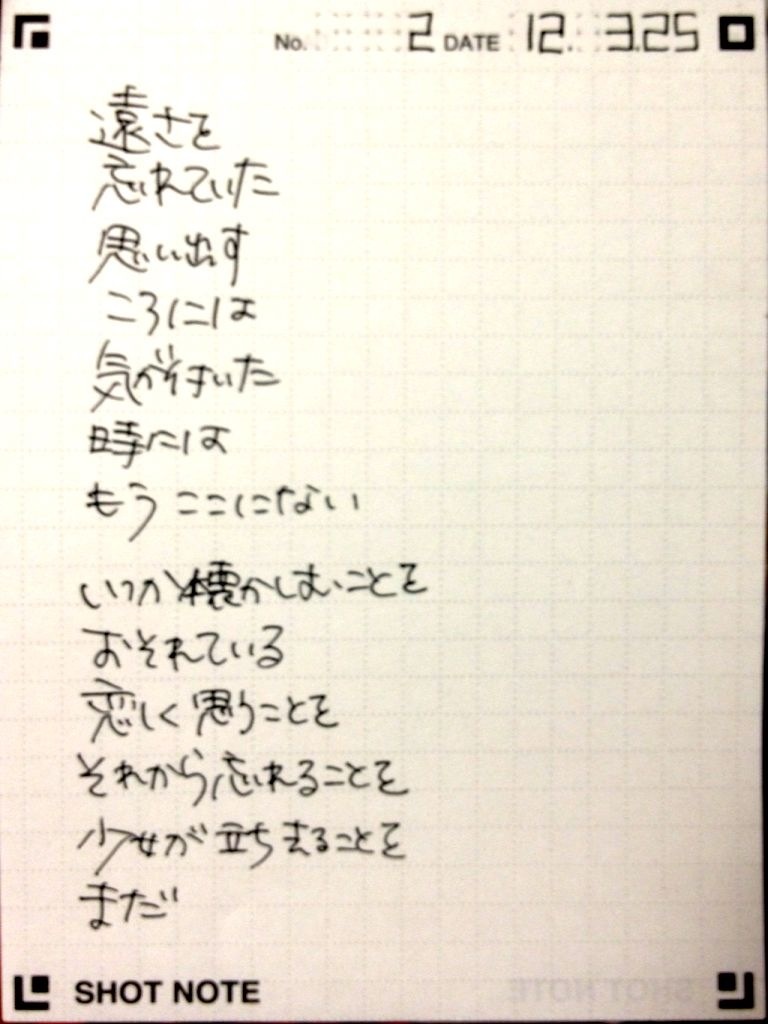 No. 2 DATE 12. 3.25
遠さを
忘れていた
思い出す
ころには
気が付いた
時には
もう ここにない
いつか懐かしむことを
おそれている
恋しく思うことを
それから忘れることを
少女が立ち去ることを
まだ
SHOT NOTE